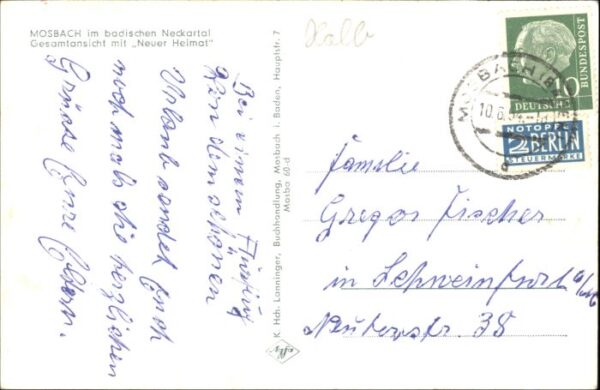 MOSBACH im badischen Neckartal
Gesamtansicht mit „Neuer Heimat"
Bei einem Ausflug
in den schönen
Urlaub sendet Euch
noch mals die herzlichen
Grüsse Eure Eltern.
K. Hch. Lanninger, Buchhandlung, Mosbach i. Baden, Hauptstr. 7
Mosba 60-d
DEUTSCHE
BUNDESPOST
10
MOSBACH (BADEN)
10.6.
NOTOPFER
2 BERLIN
STEUERMARKE
Familie
Gregor Fischer
in Schweinfurt a/M
38